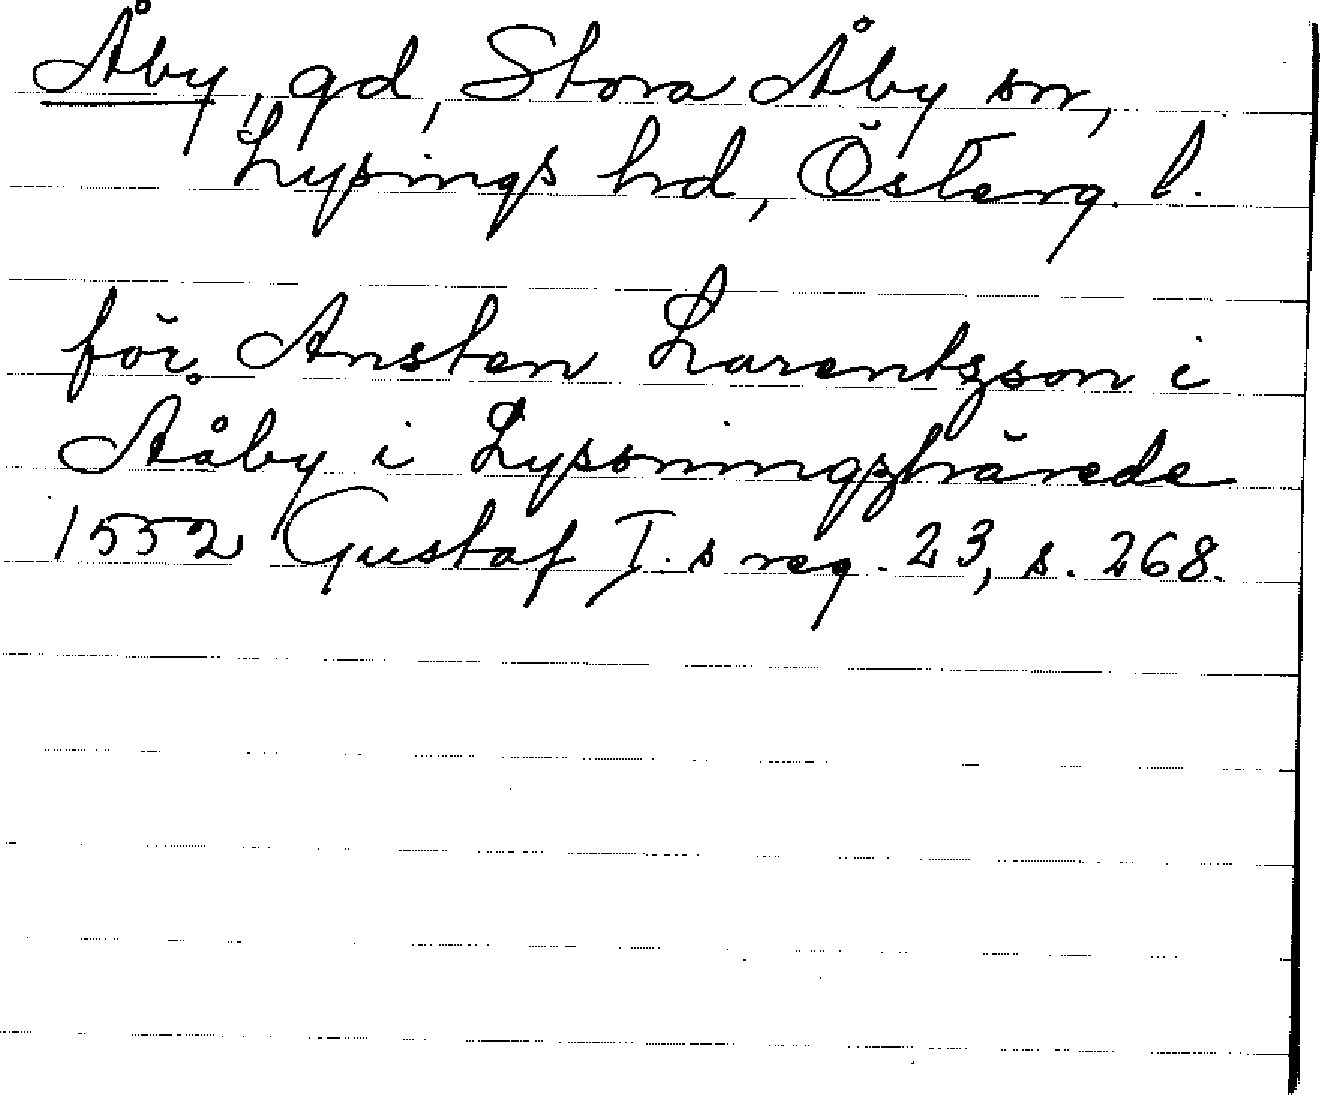 Åby, gd, Stora Åby sn,
Lysings hd, Österg. l.
för Ansten Larentzson i
Aåby i Lyssningzhärede
1552 Gustaf I.s reg. 23, s. 268.